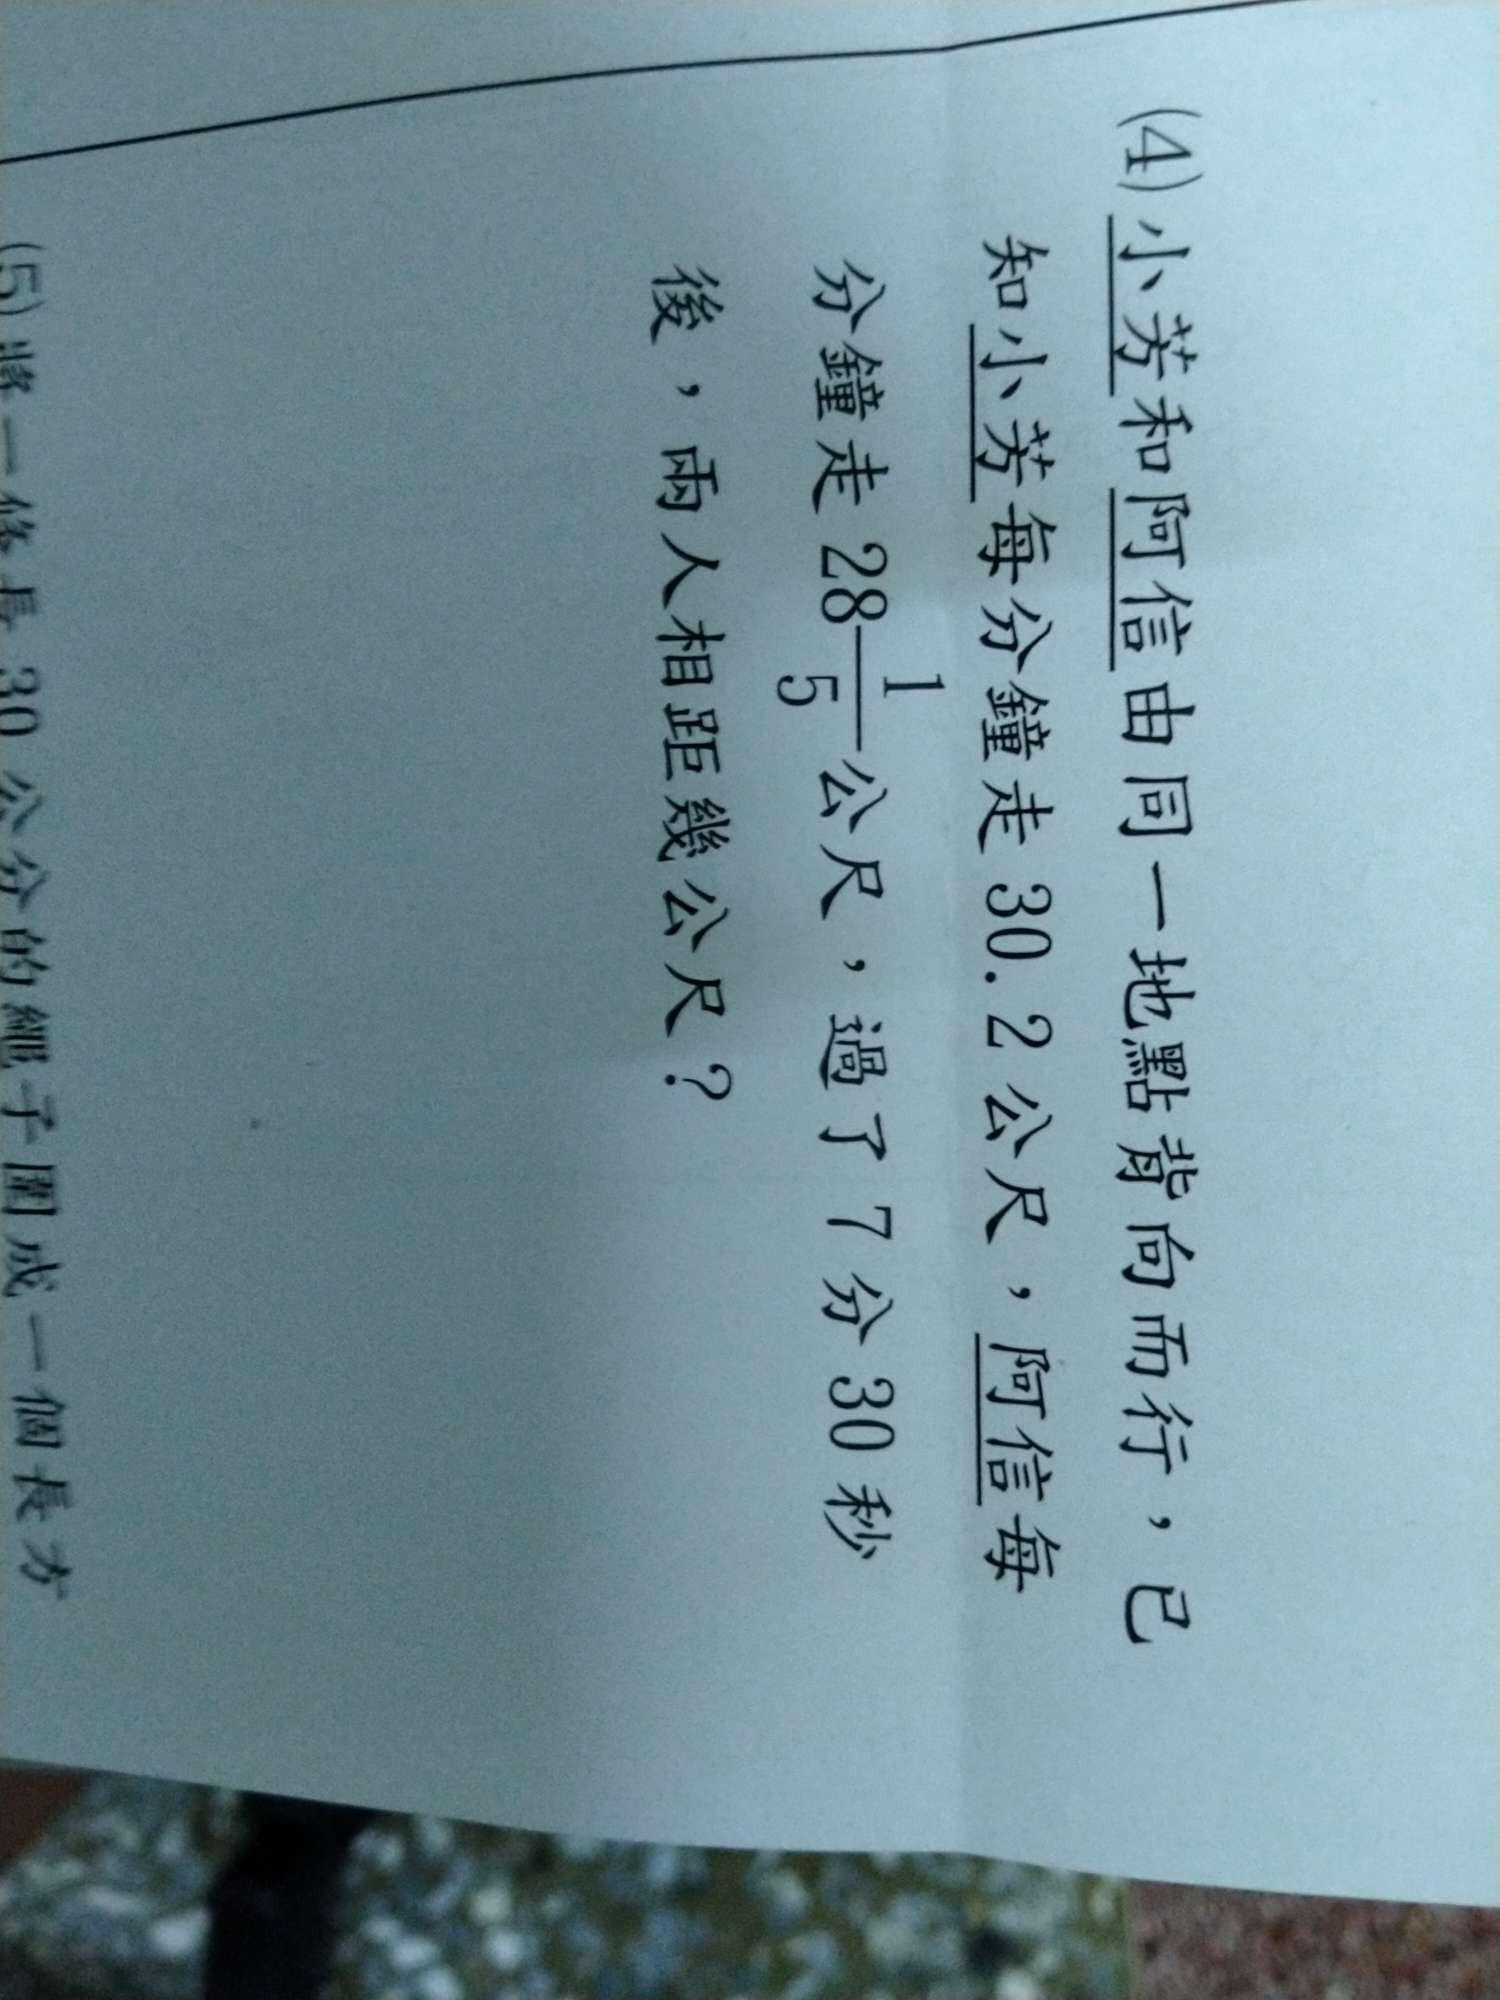 (4)小芳和阿信由同一地點背向而行，已
知小芳每分鐘走30.2公尺，阿信每
分鐘走28 1/5 公尺，過了7分30秒
後，兩人相距幾公尺？
(5)將一條長30公分的繩子圍成一個長方